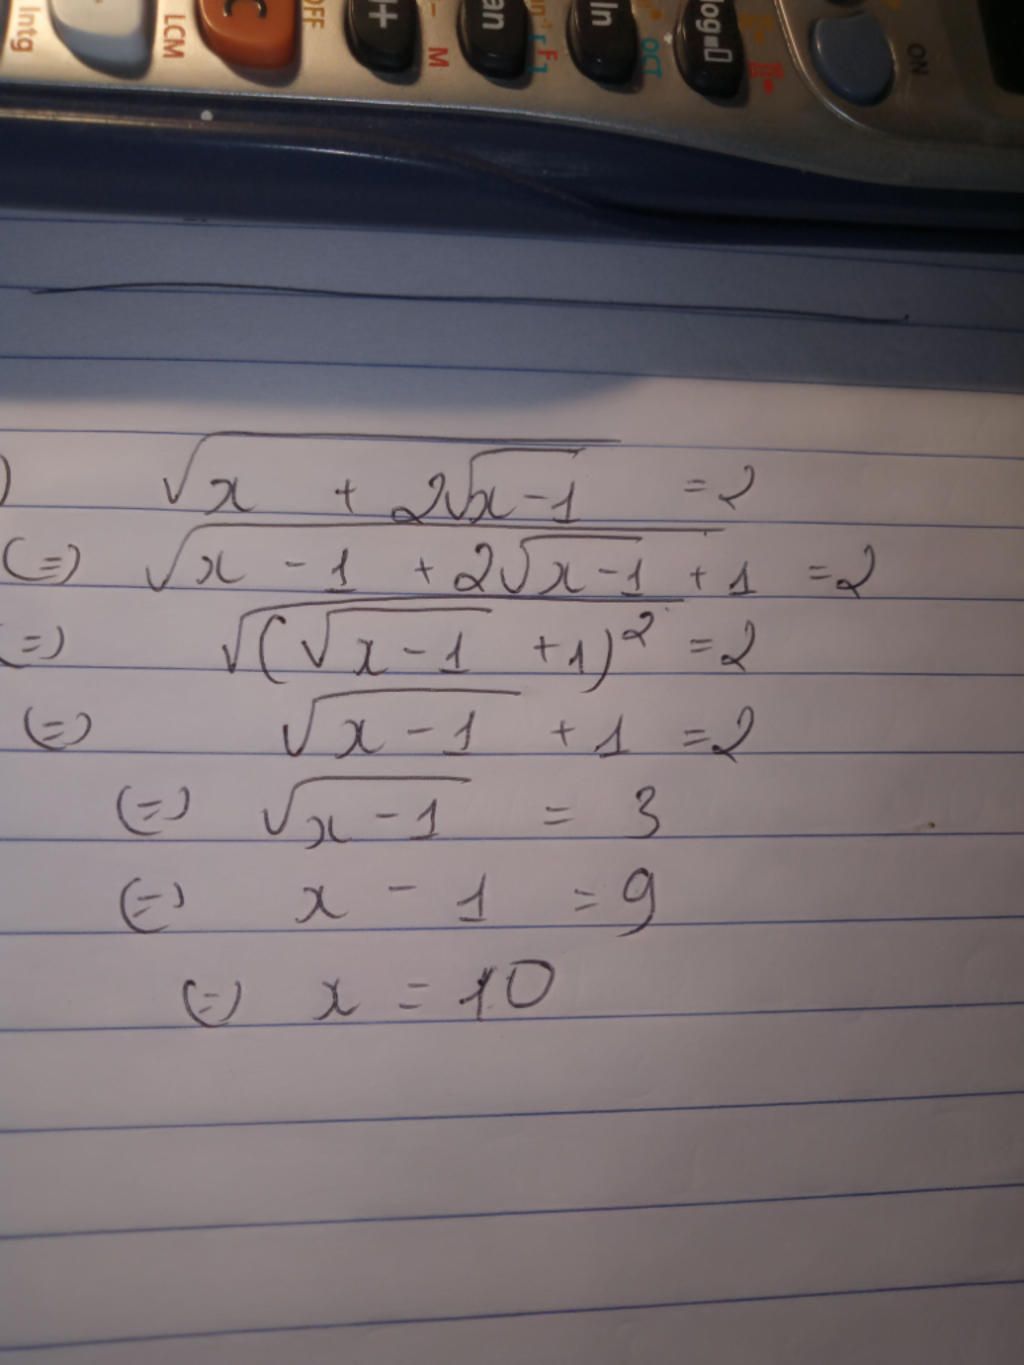 Intg LCM C OFF ++ M- M an ln OCT log ON
) √(x + 2√(x-1)) = 2
(=) √(x - 1 + 2√(x-1) + 1) = 2
(=) √((√(x-1) + 1)²) = 2
(=) √(x-1) + 1 = 2
(=) √(x-1) = 3
(=) x - 1 = 9
(=) x = 10